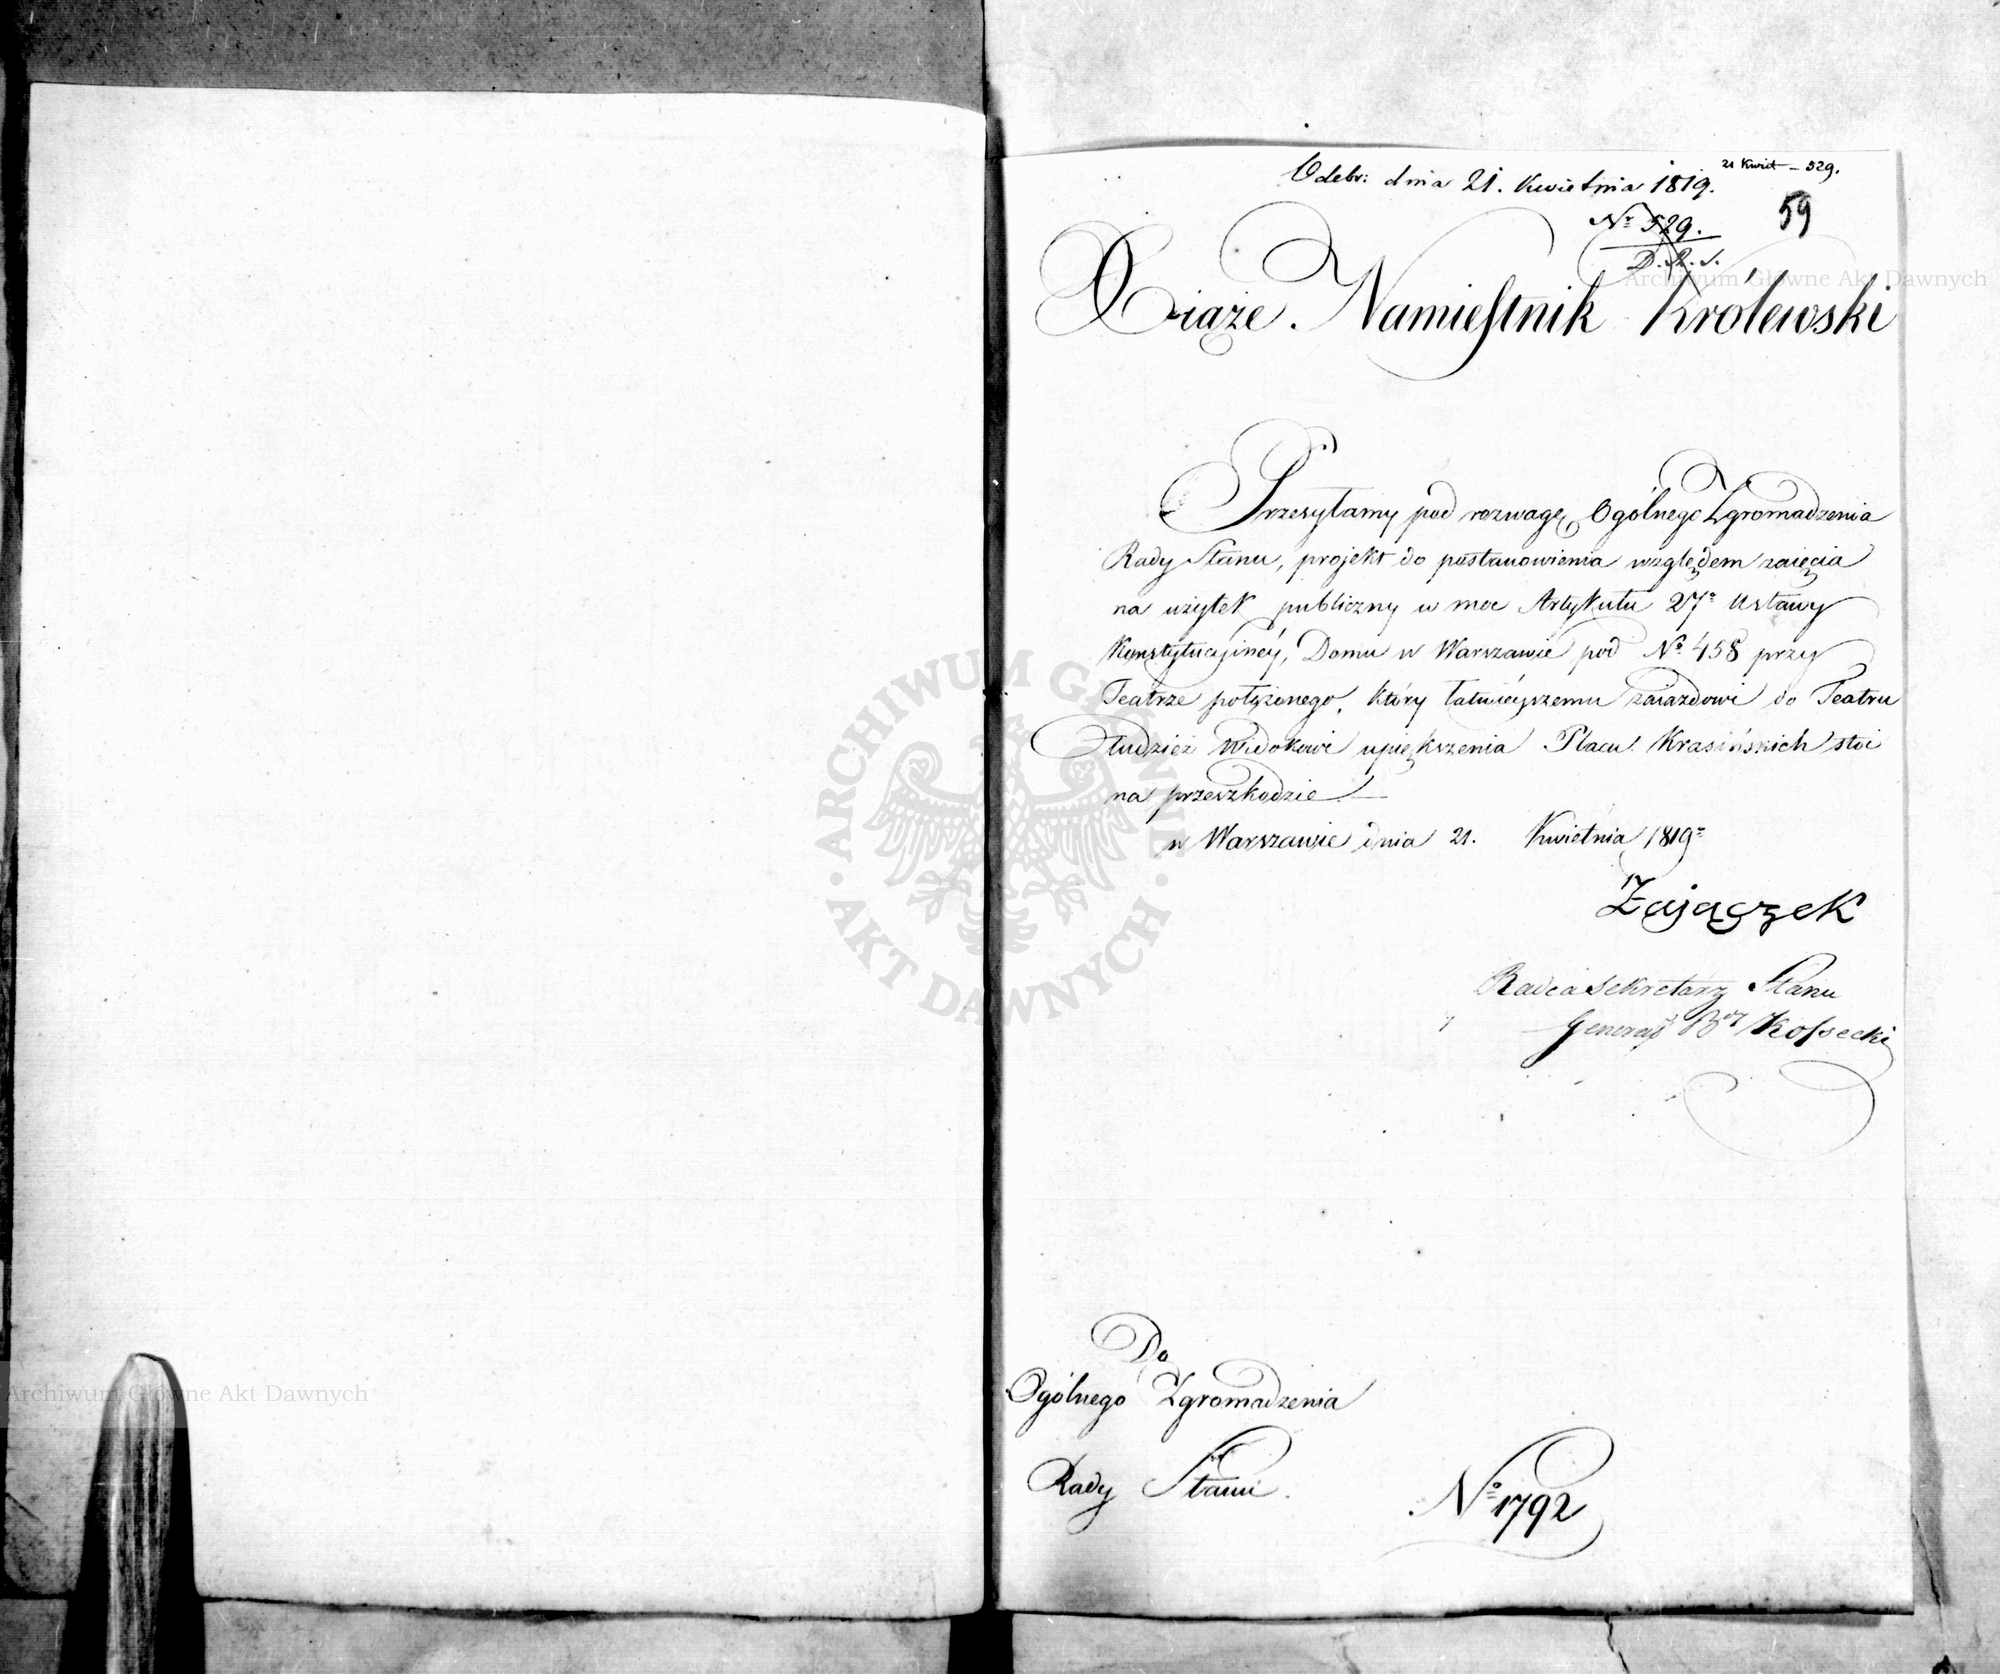 Odebr: dnia 21. Kwietnia 1819.
21 Kwiet – 529.
Nº 529.
D.R.S.
59
Xiąże Namiestnik Krolewski
Przesyłamy pod rozwagę Ogólnego Zgromadzenia
Rady Stanu, projekt do postanowienia względem zaięcia
na użytek publiczny w moc Artykułu 27º Ustawy
Konstytucyinéy, Domu w Warszawie pod Nº 458 przy
Teatrze położonego, który łatwieyszemu zaiazdowi do Teatru
tudzież widokowi upiększenia Placu Krasińskich stoi
na przeszkodzie. —
w Warszawie dnia 21. Kwietnia 1819º
Zajączek
Radca Sekretarz Stanu
Generał Bdy Kossecki
Do
Ogólnego Zgromadzenia
Rady Stanu.
Nº 1792
Archiwum Główne Akt Dawnych
ARCHIWUM GŁÓWNE · AKT DAWNYCH ·
Archiwum Główne Akt Dawnych